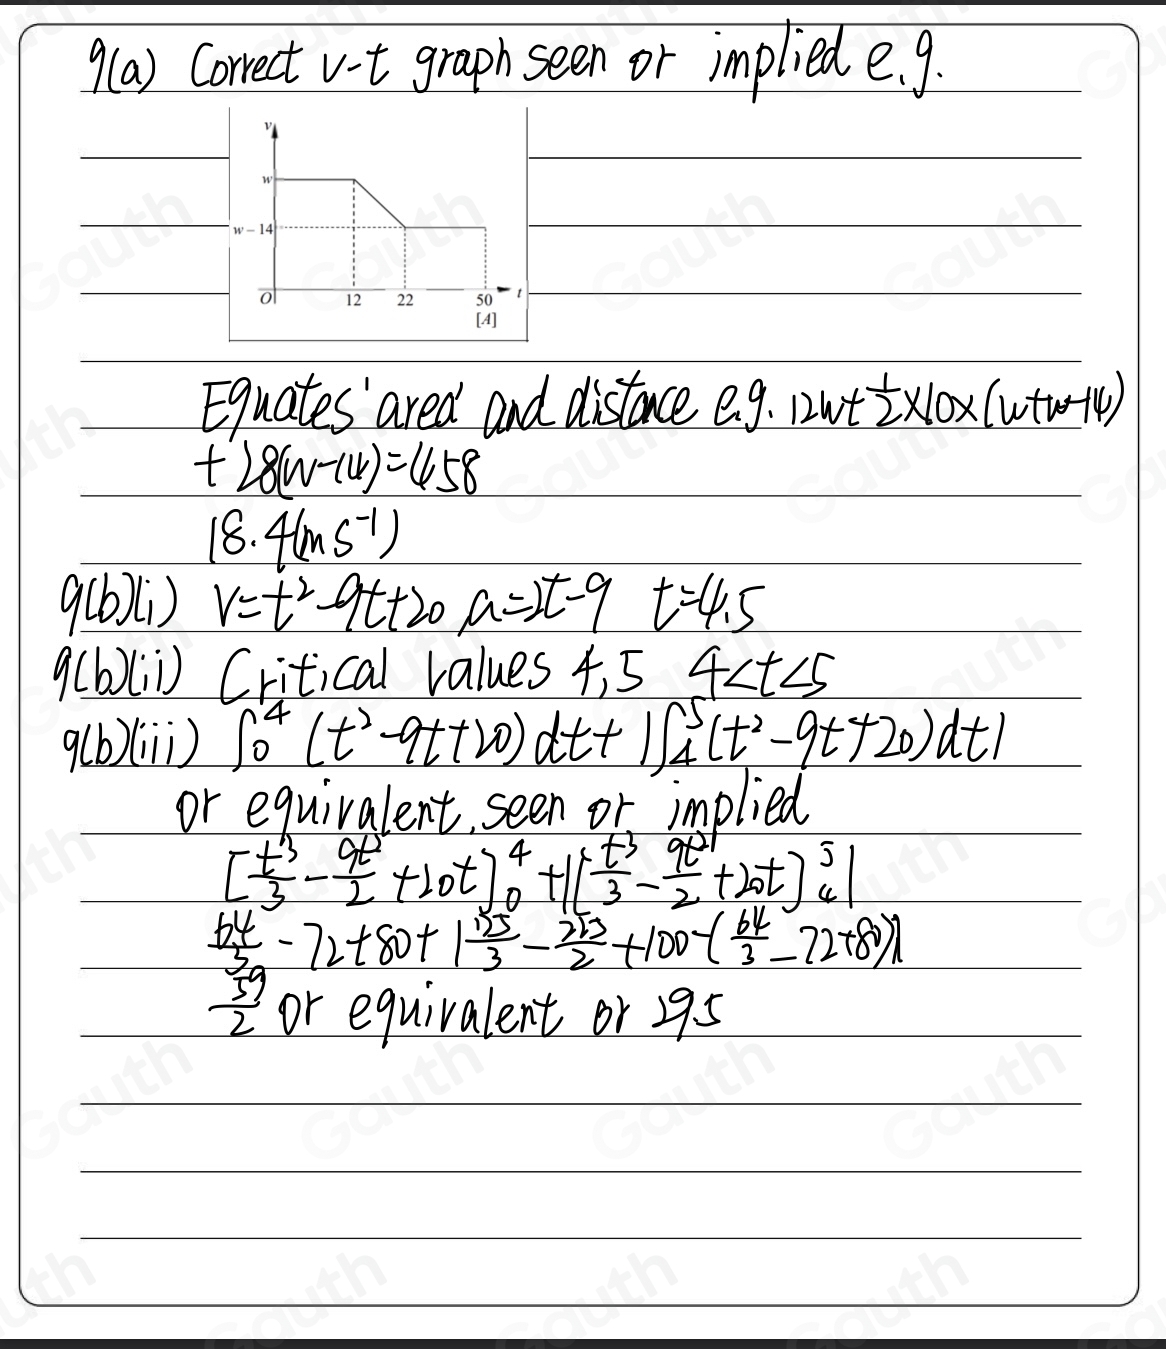 9(a) Correct v-t graph seen or implied e.g.
v
w
w – 14
O
12 22 50 t
[A]
Equates 'area' and distance e.g. 12w+½×10×(w+w-14)
+ 28(w-14)=458
18.4(ms⁻¹)
9(b)(i) v=t²-9t+20, a=2t-9 t=4.5
9(b)(ii) Critical values 4,5 4<t<5
9(b)(iii) ∫₀⁴ (t²-9t+20)dt+|∫₄⁵(t²-9t+20)dt|
or equivalent, seen or implied
[t³/3 - 9t²/2 +20t]₀⁴ +|[t³/3 - 9t²/2 +20t]₄⁵|
64/3 -72+80+|125/3 - 225/2 +100-(64/3 -72+80)|
59/2 or equivalent or 29.5
Gauth